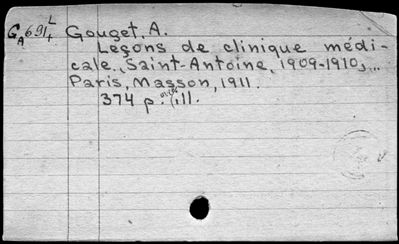 GA691 L4 Gouget, A.
Leçons de clinique médi-
cale. Saint-Antoine, 1909-1910,...
Paris, Masson, 1911.
374 p. ill.